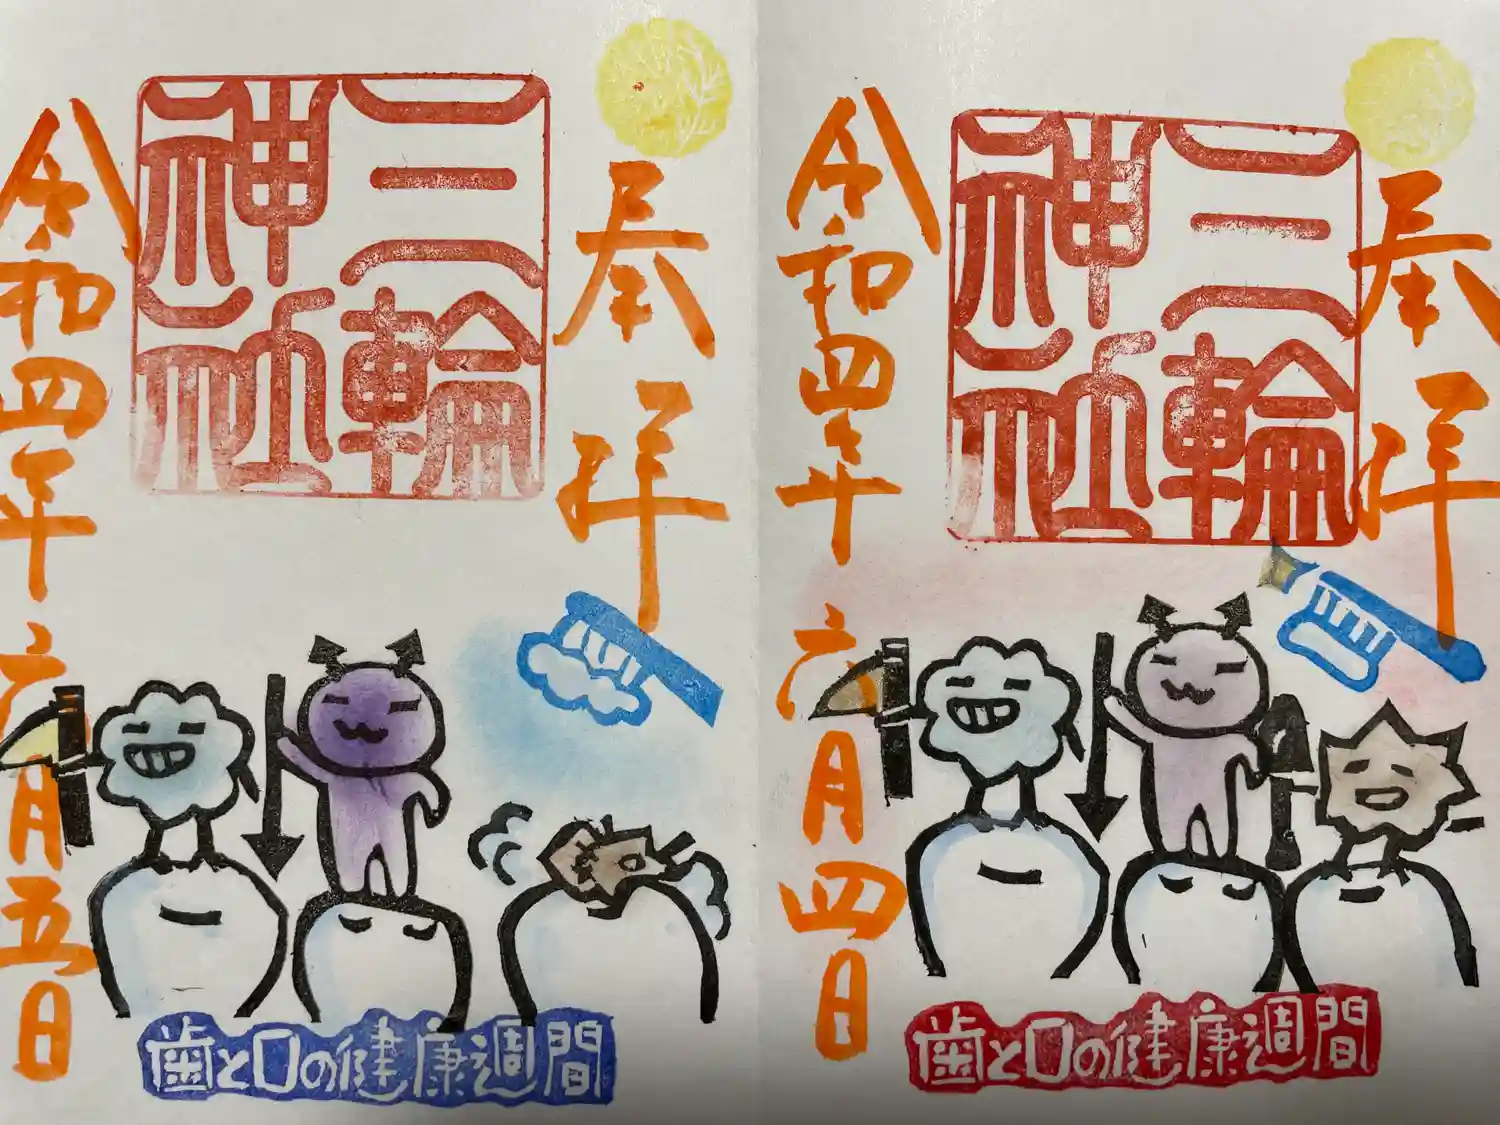 奉拝
三輪
神社
令和四年六月四日
歯と口の健康週間
奉拝
三輪
神社
令和四年六月五日
歯と口の健康週間